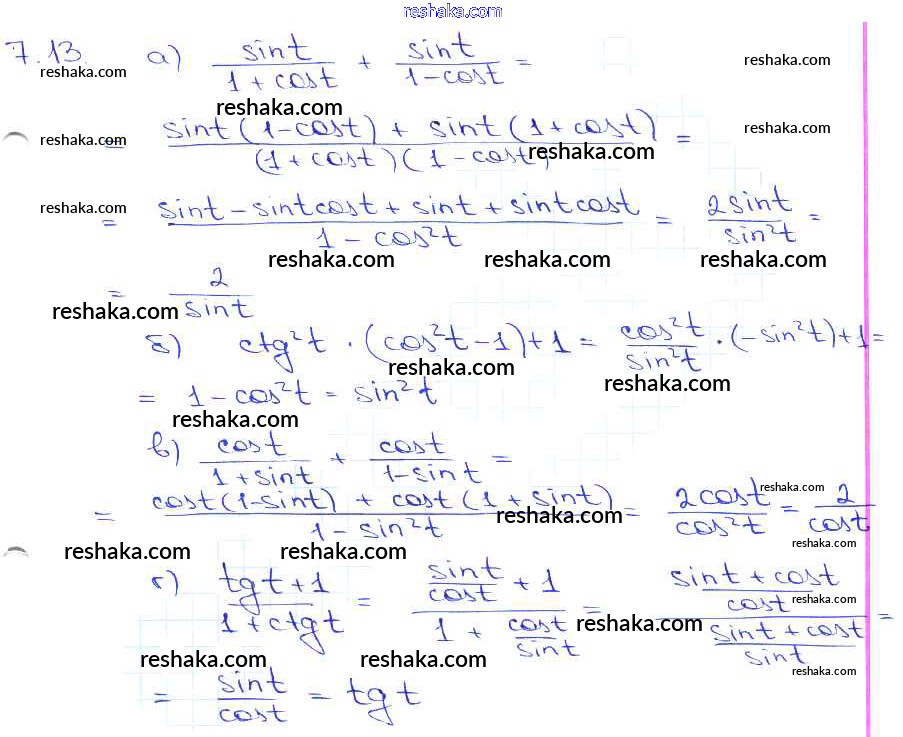 reshaka.com
7.13. а) sint/(1 + cost) + sint/(1 - cost) =
reshaka.com reshaka.com
reshaka.com
= (sint(1 - cost) + sint(1 + cost))/((1 + cost)(1 - cost)) =
reshaka.com reshaka.com reshaka.com
= (sint - sintcost + sint + sintcost)/(1 - cos²t) = 2sint/sin²t =
reshaka.com
reshaka.com reshaka.com reshaka.com
= 2/sint
reshaka.com
б) ctg²t · (cos²t - 1) + 1 = cos²t/sin²t · (-sin²t) + 1 =
reshaka.com reshaka.com
= 1 - cos²t = sin²t
reshaka.com
в) cost/(1 + sint) + cost/(1 - sint) =
= (cost(1 - sint) + cost(1 + sint))/(1 - sin²t) = 2cost/cos²t = 2/cost
reshaka.com reshaka.com
reshaka.com reshaka.com reshaka.com
г) (tgt + 1)/(1 + ctgt) = (sint/cost + 1)/(1 + cost/sint) = ((sint + cost)/cost)/((sint + cost)/sint) =
reshaka.com reshaka.com
reshaka.com reshaka.com reshaka.com
= sint/cost = tgt